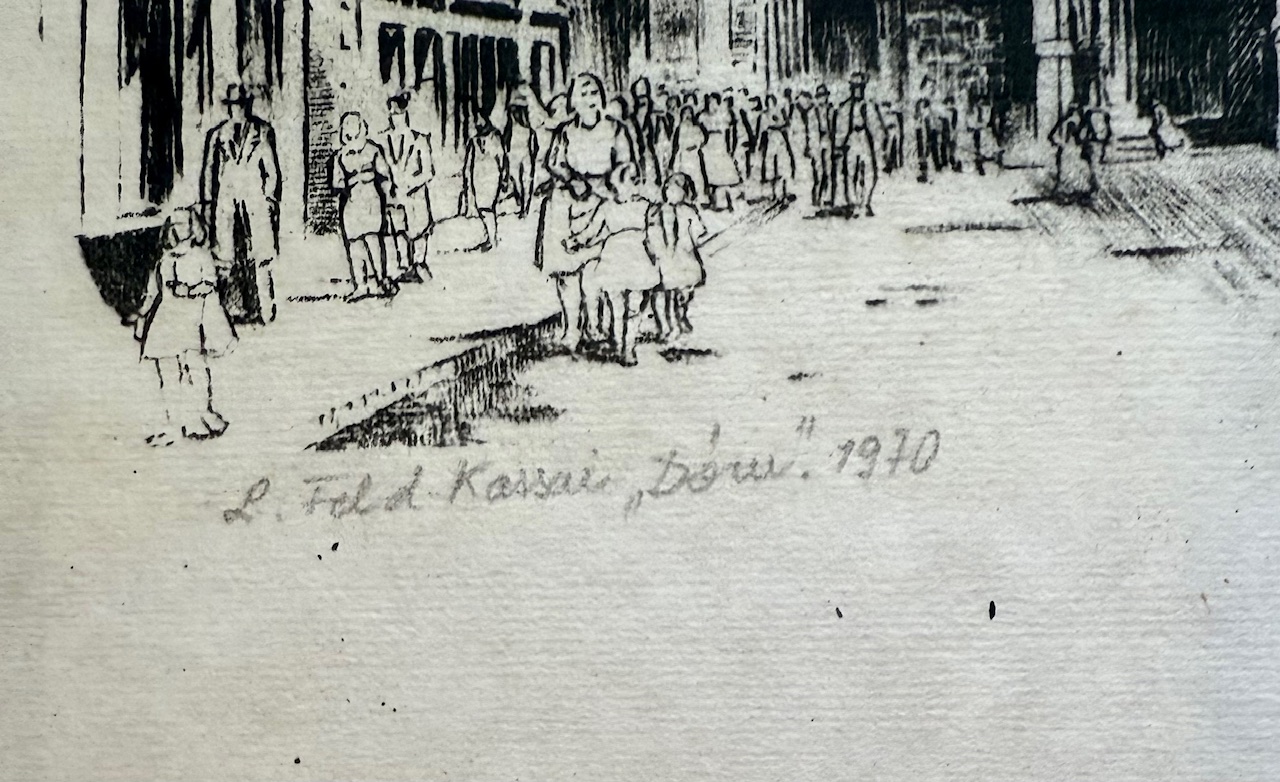 L. Feld Kassai „Dóm". 1970